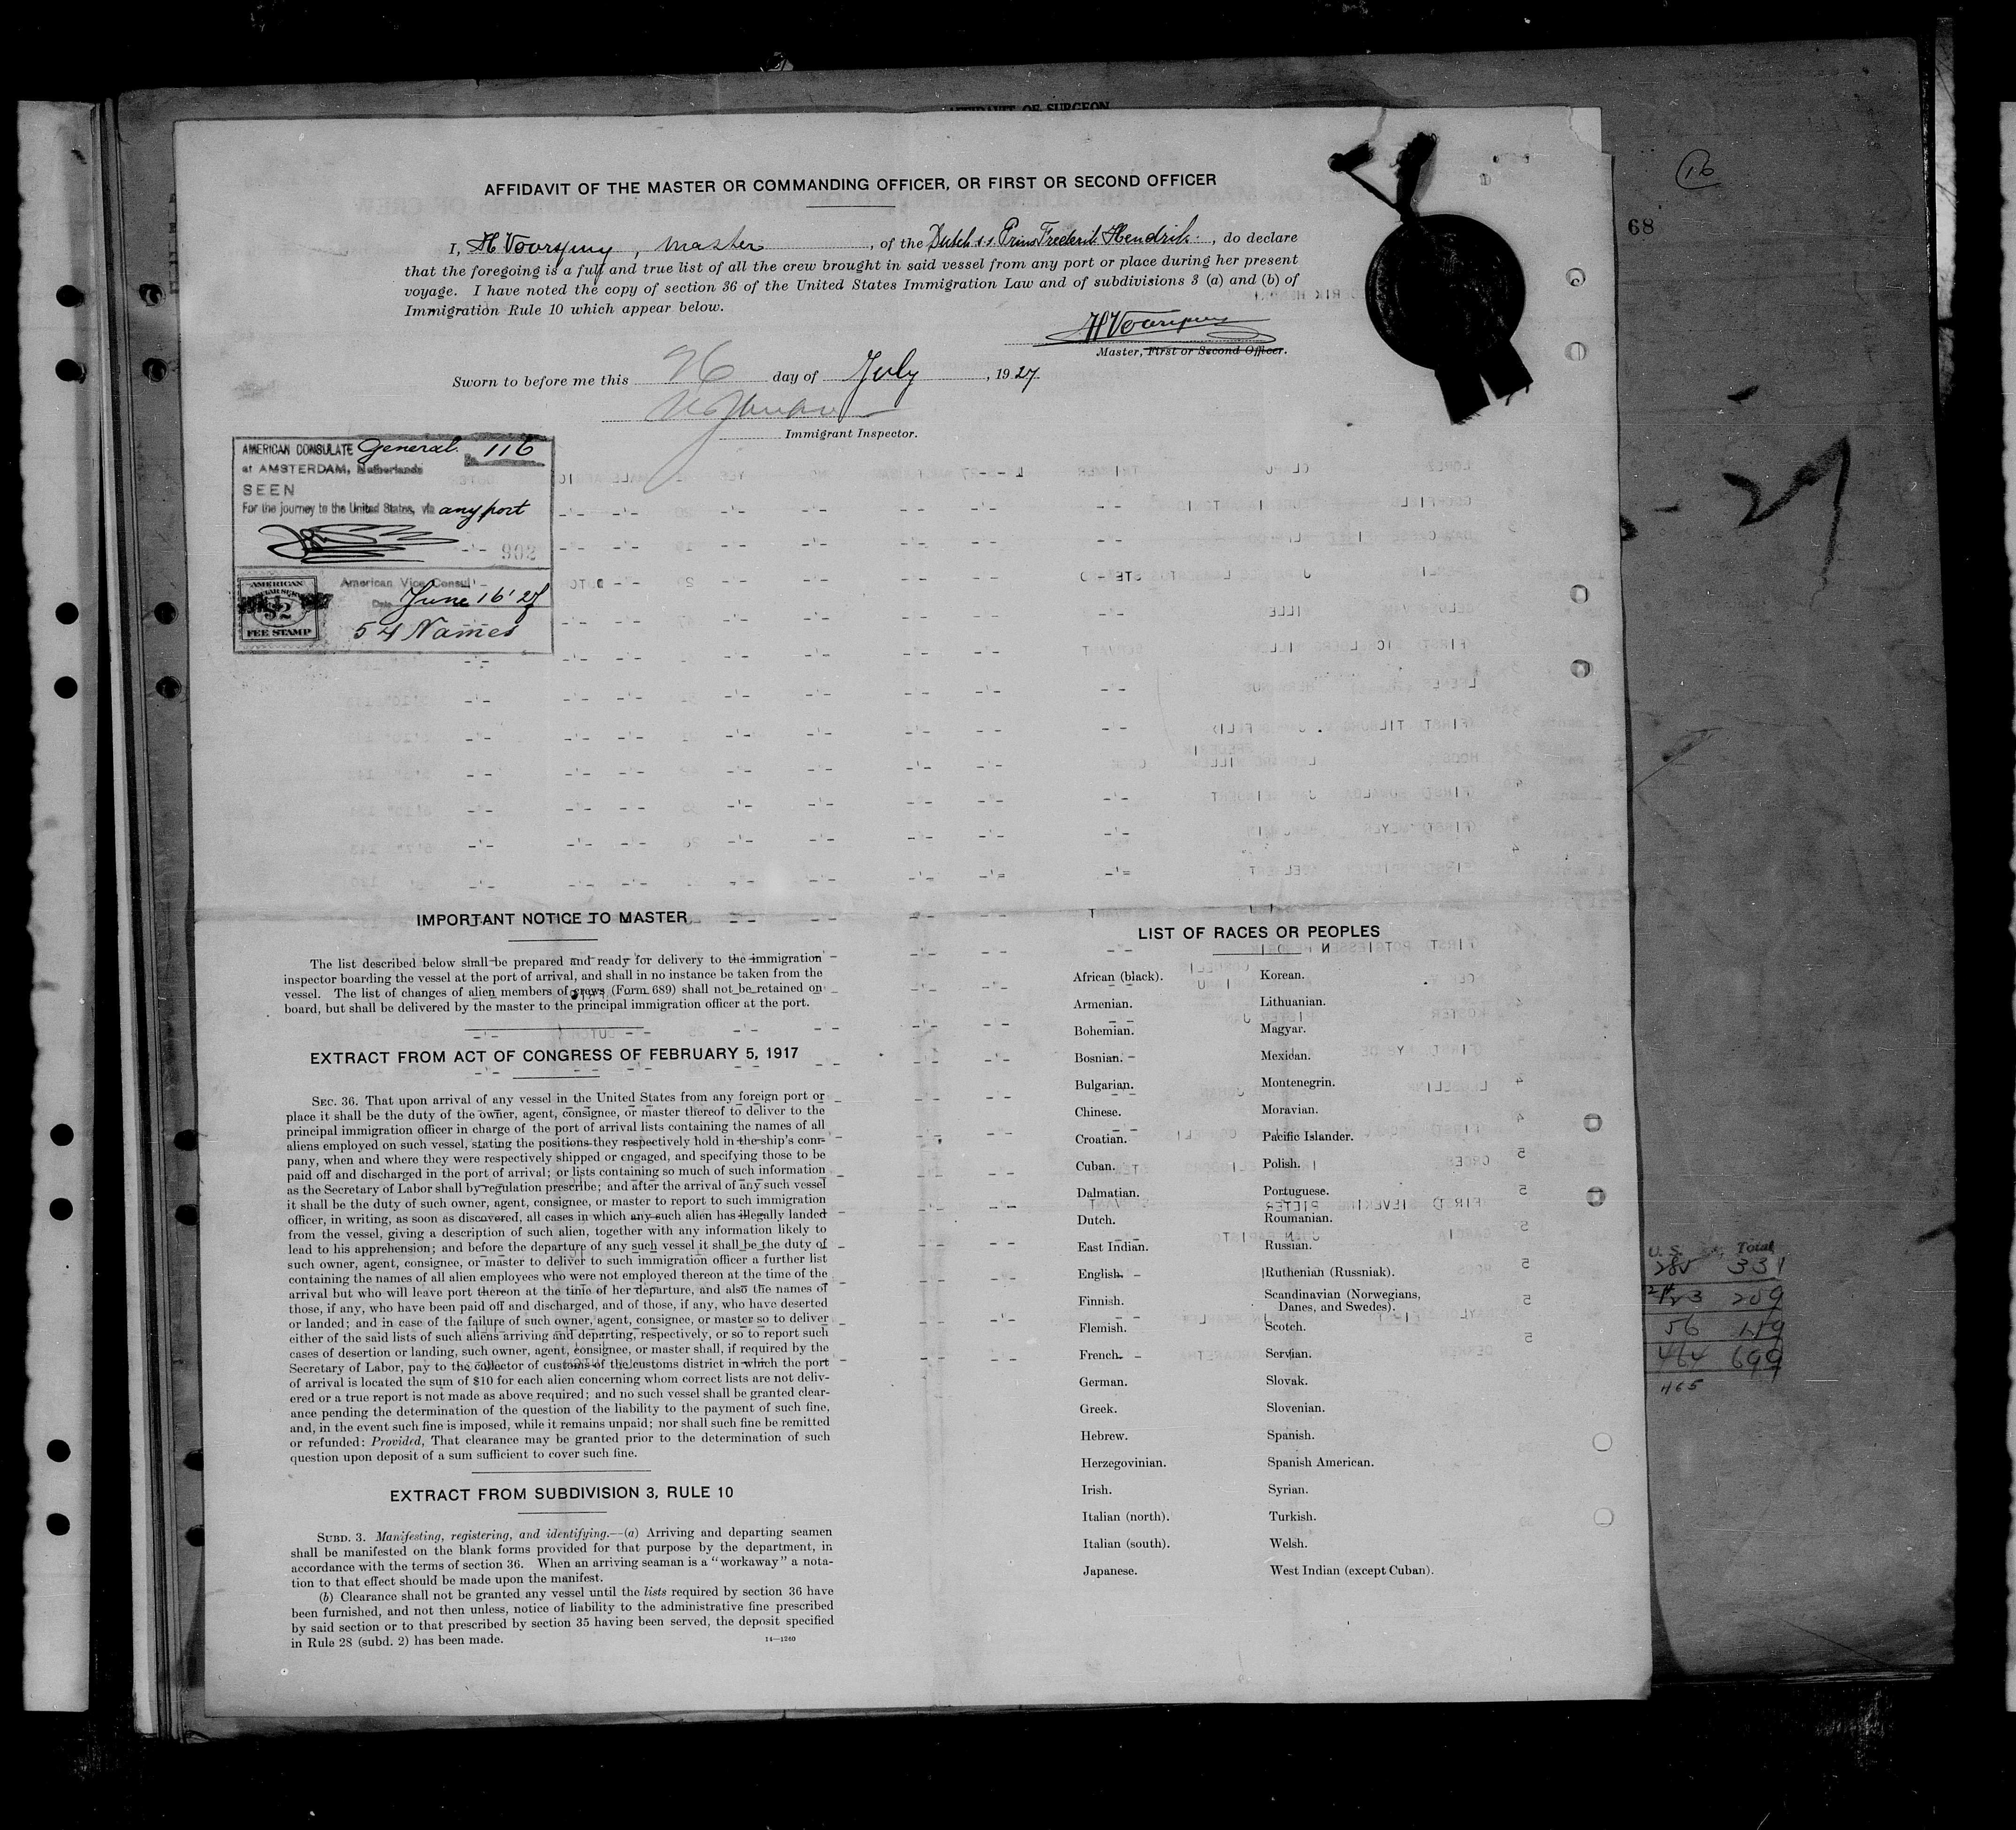 AFFIDAVIT OF SURGEON
AFFIDAVIT OF THE MASTER OR COMMANDING OFFICER, OR FIRST OR SECOND OFFICER
I, , master, of the Dutch s.s. Prins Frederik Hendrik, do declare
that the foregoing is a full and true list of all the crew brought in said vessel from any port or place during her present
voyage. I have noted the copy of section 36 of the United States Immigration Law and of subdivisions 3 (a) and (b) of
Immigration Rule 10 which appear below.
Master, First or Second Officer.
Sworn to before me this 26 day of July, 1927
Immigrant Inspector.
AMERICAN CONSULATE General No. 116
at AMSTERDAM, Netherlands
SEEN
For the journey to the United States, via any port
902
American Vice Consul
Date June 16 '27
54 Names
AMERICAN
$2
FEE STAMP
16
68
IMPORTANT NOTICE TO MASTER
The list described below shall be prepared and ready for delivery to the immigration
inspector boarding the vessel at the port of arrival, and shall in no instance be taken from the
vessel. The list of changes of alien members of crews (Form 689) shall not be retained on
board, but shall be delivered by the master to the principal immigration officer at the port.
EXTRACT FROM ACT OF CONGRESS OF FEBRUARY 5, 1917
SEC. 36. That upon arrival of any vessel in the United States from any foreign port or
place it shall be the duty of the owner, agent, consignee, or master thereof to deliver to the
principal immigration officer in charge of the port of arrival lists containing the names of all
aliens employed on such vessel, stating the positions they respectively hold in the ship's com-
pany, when and where they were respectively shipped or engaged, and specifying those to be
paid off and discharged in the port of arrival; or lists containing so much of such information
as the Secretary of Labor shall by regulation prescribe; and after the arrival of any such vessel
it shall be the duty of such owner, agent, consignee, or master to report to such immigration
officer, in writing, as soon as discovered, all cases in which any such alien has illegally landed
from the vessel, giving a description of such alien, together with any information likely to
lead to his apprehension; and before the departure of any such vessel it shall be the duty of
such owner, agent, consignee, or master to deliver to such immigration officer a further list
containing the names of all alien employees who were not employed thereon at the time of the
arrival but who will leave port thereon at the time of her departure, and also the names of
those, if any, who have been paid off and discharged, and of those, if any, who have deserted
or landed; and in case of the failure of such owner, agent, consignee, or master so to deliver
either of the said lists of such aliens arriving and departing, respectively, or so to report such
cases of desertion or landing, such owner, agent, consignee, or master shall, if required by the
Secretary of Labor, pay to the collector of customs of the customs district in which the port
of arrival is located the sum of $10 for each alien concerning whom correct lists are not deliv-
ered or a true report is not made as above required; and no such vessel shall be granted clear-
ance pending the determination of the question of the liability to the payment of such fine,
and, in the event such fine is imposed, while it remains unpaid; nor shall such fine be remitted
or refunded: Provided, That clearance may be granted prior to the determination of such
question upon deposit of a sum sufficient to cover such fine.
EXTRACT FROM SUBDIVISION 3, RULE 10
SUBD. 3. Manifesting, registering, and identifying.—(a) Arriving and departing seamen
shall be manifested on the blank forms provided for that purpose by the department, in
accordance with the terms of section 36. When an arriving seaman is a "workaway" a nota-
tion to that effect should be made upon the manifest.
(b) Clearance shall not be granted any vessel until the lists required by section 36 have
been furnished, and not then unless, notice of liability to the administrative fine prescribed
by said section or to that prescribed by section 35 having been served, the deposit specified
in Rule 28 (subd. 2) has been made.
14—1260
LIST OF RACES OR PEOPLES
African (black). Korean.
Armenian. Lithuanian.
Bohemian. Magyar.
Bosnian. Mexican.
Bulgarian. Montenegrin.
Chinese. Moravian.
Croatian. Pacific Islander.
Cuban. Polish.
Dalmatian. Portuguese.
Dutch. Roumanian.
East Indian. Russian.
English. Ruthenian (Russniak).
Finnish. Scandinavian (Norwegians,
Danes, and Swedes).
Flemish. Scotch.
French. Servian.
German. Slovak.
Greek. Slovenian.
Hebrew. Spanish.
Herzegovinian. Spanish American.
Irish. Syrian.
Italian (north). Turkish.
Italian (south). Welsh.
Japanese. West Indian (except Cuban).
U.S. Total
285 331
209
56
464 699
465